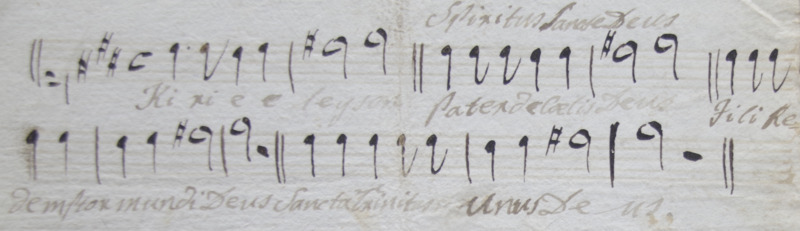 Spiritus Sancte Deus
Ki ri e e leyson Pater de Cœlis Deus Fili Re
demptor mundi Deus Sancta Trinitas Unus De us.